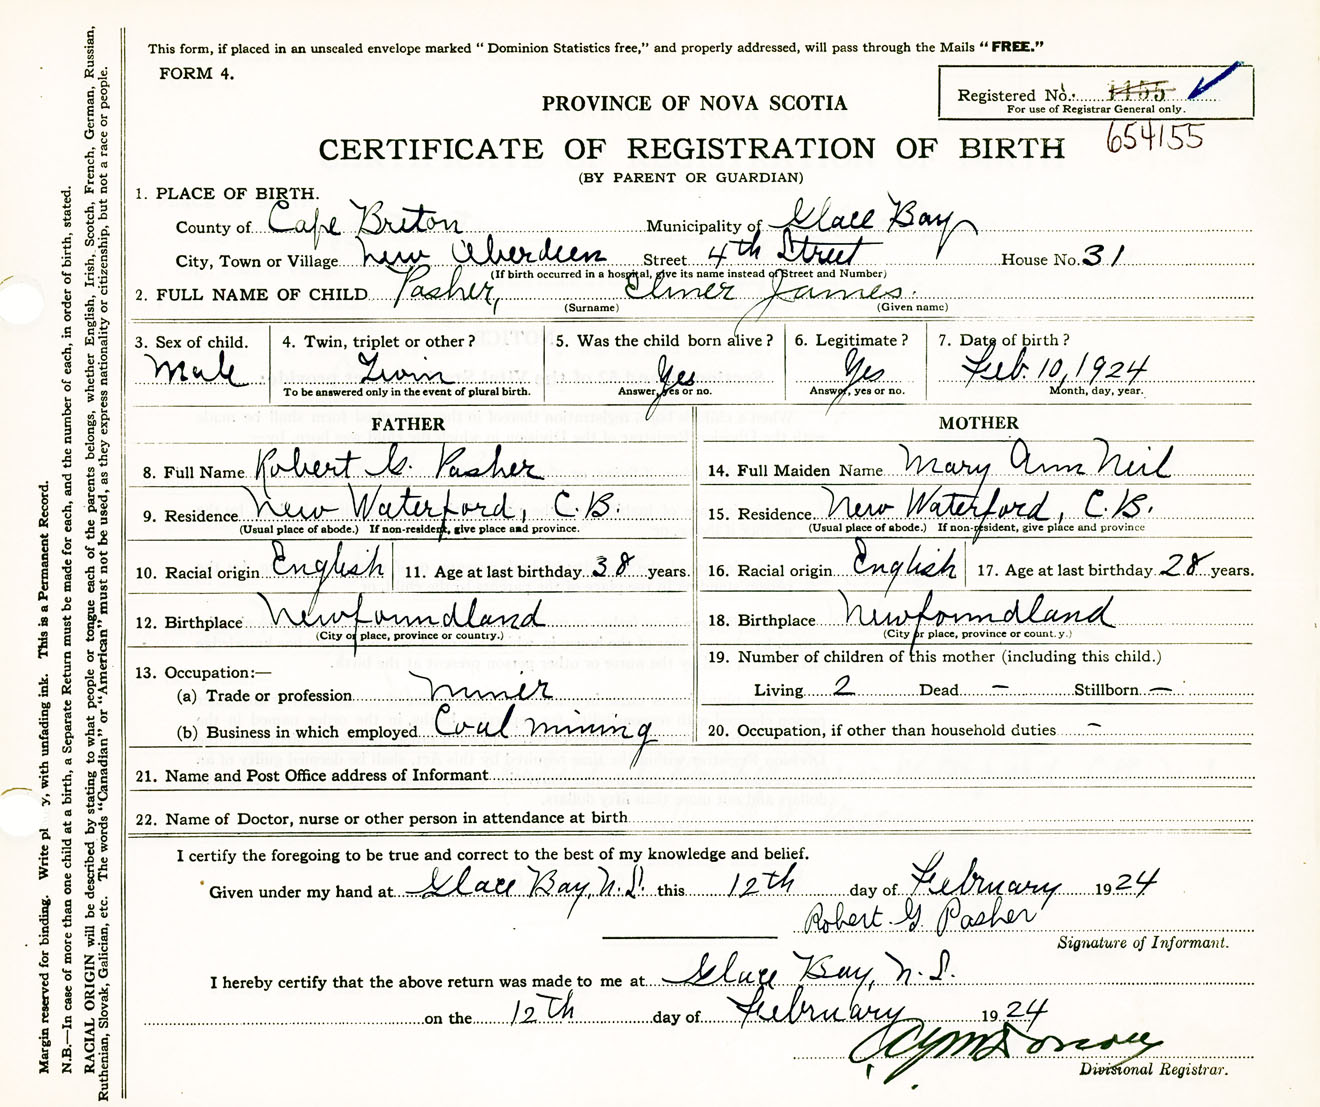 This form, if placed in an unscaled envelope marked “ Dominion Statistics free,” and properly addressed, will pass through the Mails “ FREE.”
FORM 4.
Registered No. 1155
For use of Registrar General only.
654155
PROVINCE OF NOVA SCOTIA
CERTIFICATE OF REGISTRATION OF BIRTH
(BY PARENT OR GUARDIAN)
1. PLACE OF BIRTH.
County of Cape Breton Municipality of Glace Bay
City, Town or Village New Aberdeen Street 4th Street House No. 31
(If birth occurred in a hospital, give its name instead of Street and Number)
2. FULL NAME OF CHILD Pasher, Elmer James.
(Surname) (Given name)
3. Sex of child. 4. Twin, triplet or other ? 5. Was the child born alive ? 6. Legitimate ? 7. Date of birth ?
Male Twin Yes Yes Feb. 10, 1924
To be answered only in the event of plural birth. Answer, yes or no. Answer, yes or no. Month, day, year.
FATHER MOTHER
8. Full Name Robert G. Pasher 14. Full Maiden Name Mary Ann Neil
9. Residence New Waterford, C.B. 15. Residence New Waterford, C.B.
(Usual place of abode.) If non-resident, give place and province. (Usual place of abode.) If non-resident, give place and province
10. Racial origin English 11. Age at last birthday 38 years. 16. Racial origin English 17. Age at last birthday 28 years.
12. Birthplace Newfoundland 18. Birthplace Newfoundland
(City or place, province or country.) (City or place, province or country.)
13. Occupation:— 19. Number of children of this mother (including this child.)
(a) Trade or profession Miner Living 2 Dead — Stillborn —
(b) Business in which employed Coal mining 20. Occupation, if other than household duties –
21. Name and Post Office address of Informant
22. Name of Doctor, nurse or other person in attendance at birth
I certify the foregoing to be true and correct to the best of my knowledge and belief.
Given under my hand at Glace Bay, N.S. this 12th day of February 1924
Robert G Pasher
Signature of Informant.
I hereby certify that the above return was made to me at Glace Bay, N.S.
on the 12th day of February 1924
Divisional Registrar.
Margin reserved for binding. Write pl y, with unfading ink. This is a Permanent Record.
N.B.—In case of more than one child at a birth, a Separate Return must be made for each, and the number of each, in order of birth, stated.
RACIAL ORIGIN will be described by stating to what people or tongue each of the parents belongs, whether English, Irish, Scotch, French, German, Russian,
Ruthenian, Slovak, Galician, etc. The words “Canadian” or “American” must not be used, as they express nationality or citizenship, but not a race or people.